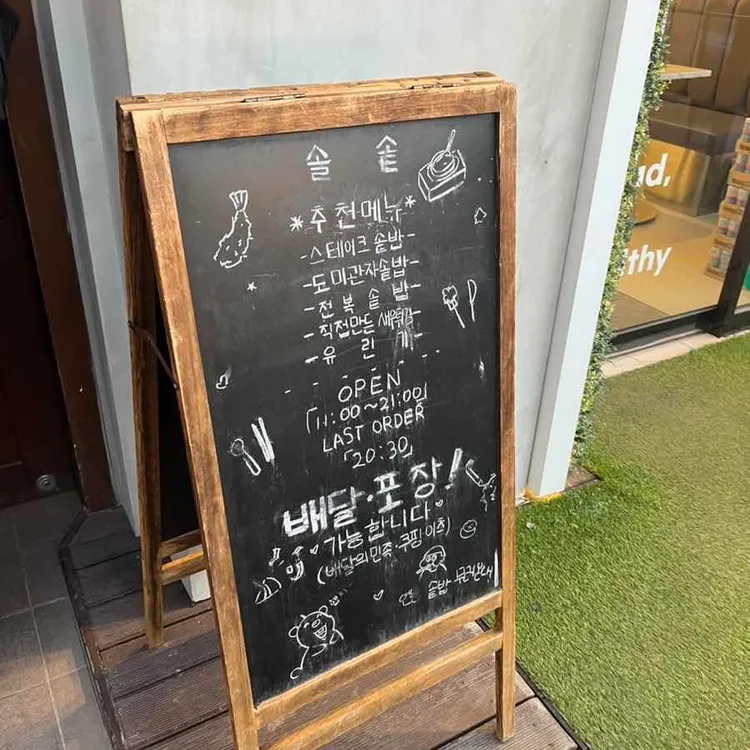 솔 솥
*추천메뉴*
-스테이크 솥밥-
-도미관자솥밥-
-전복솥밥-
-직접만든 새우튀김-
-유린기-
OPEN
「11:00~21:00」
LAST ORDER
「20:30」
배달·포장!
가능합니다
(배달의민족·쿠팡이츠)
솥밥
d,
thy